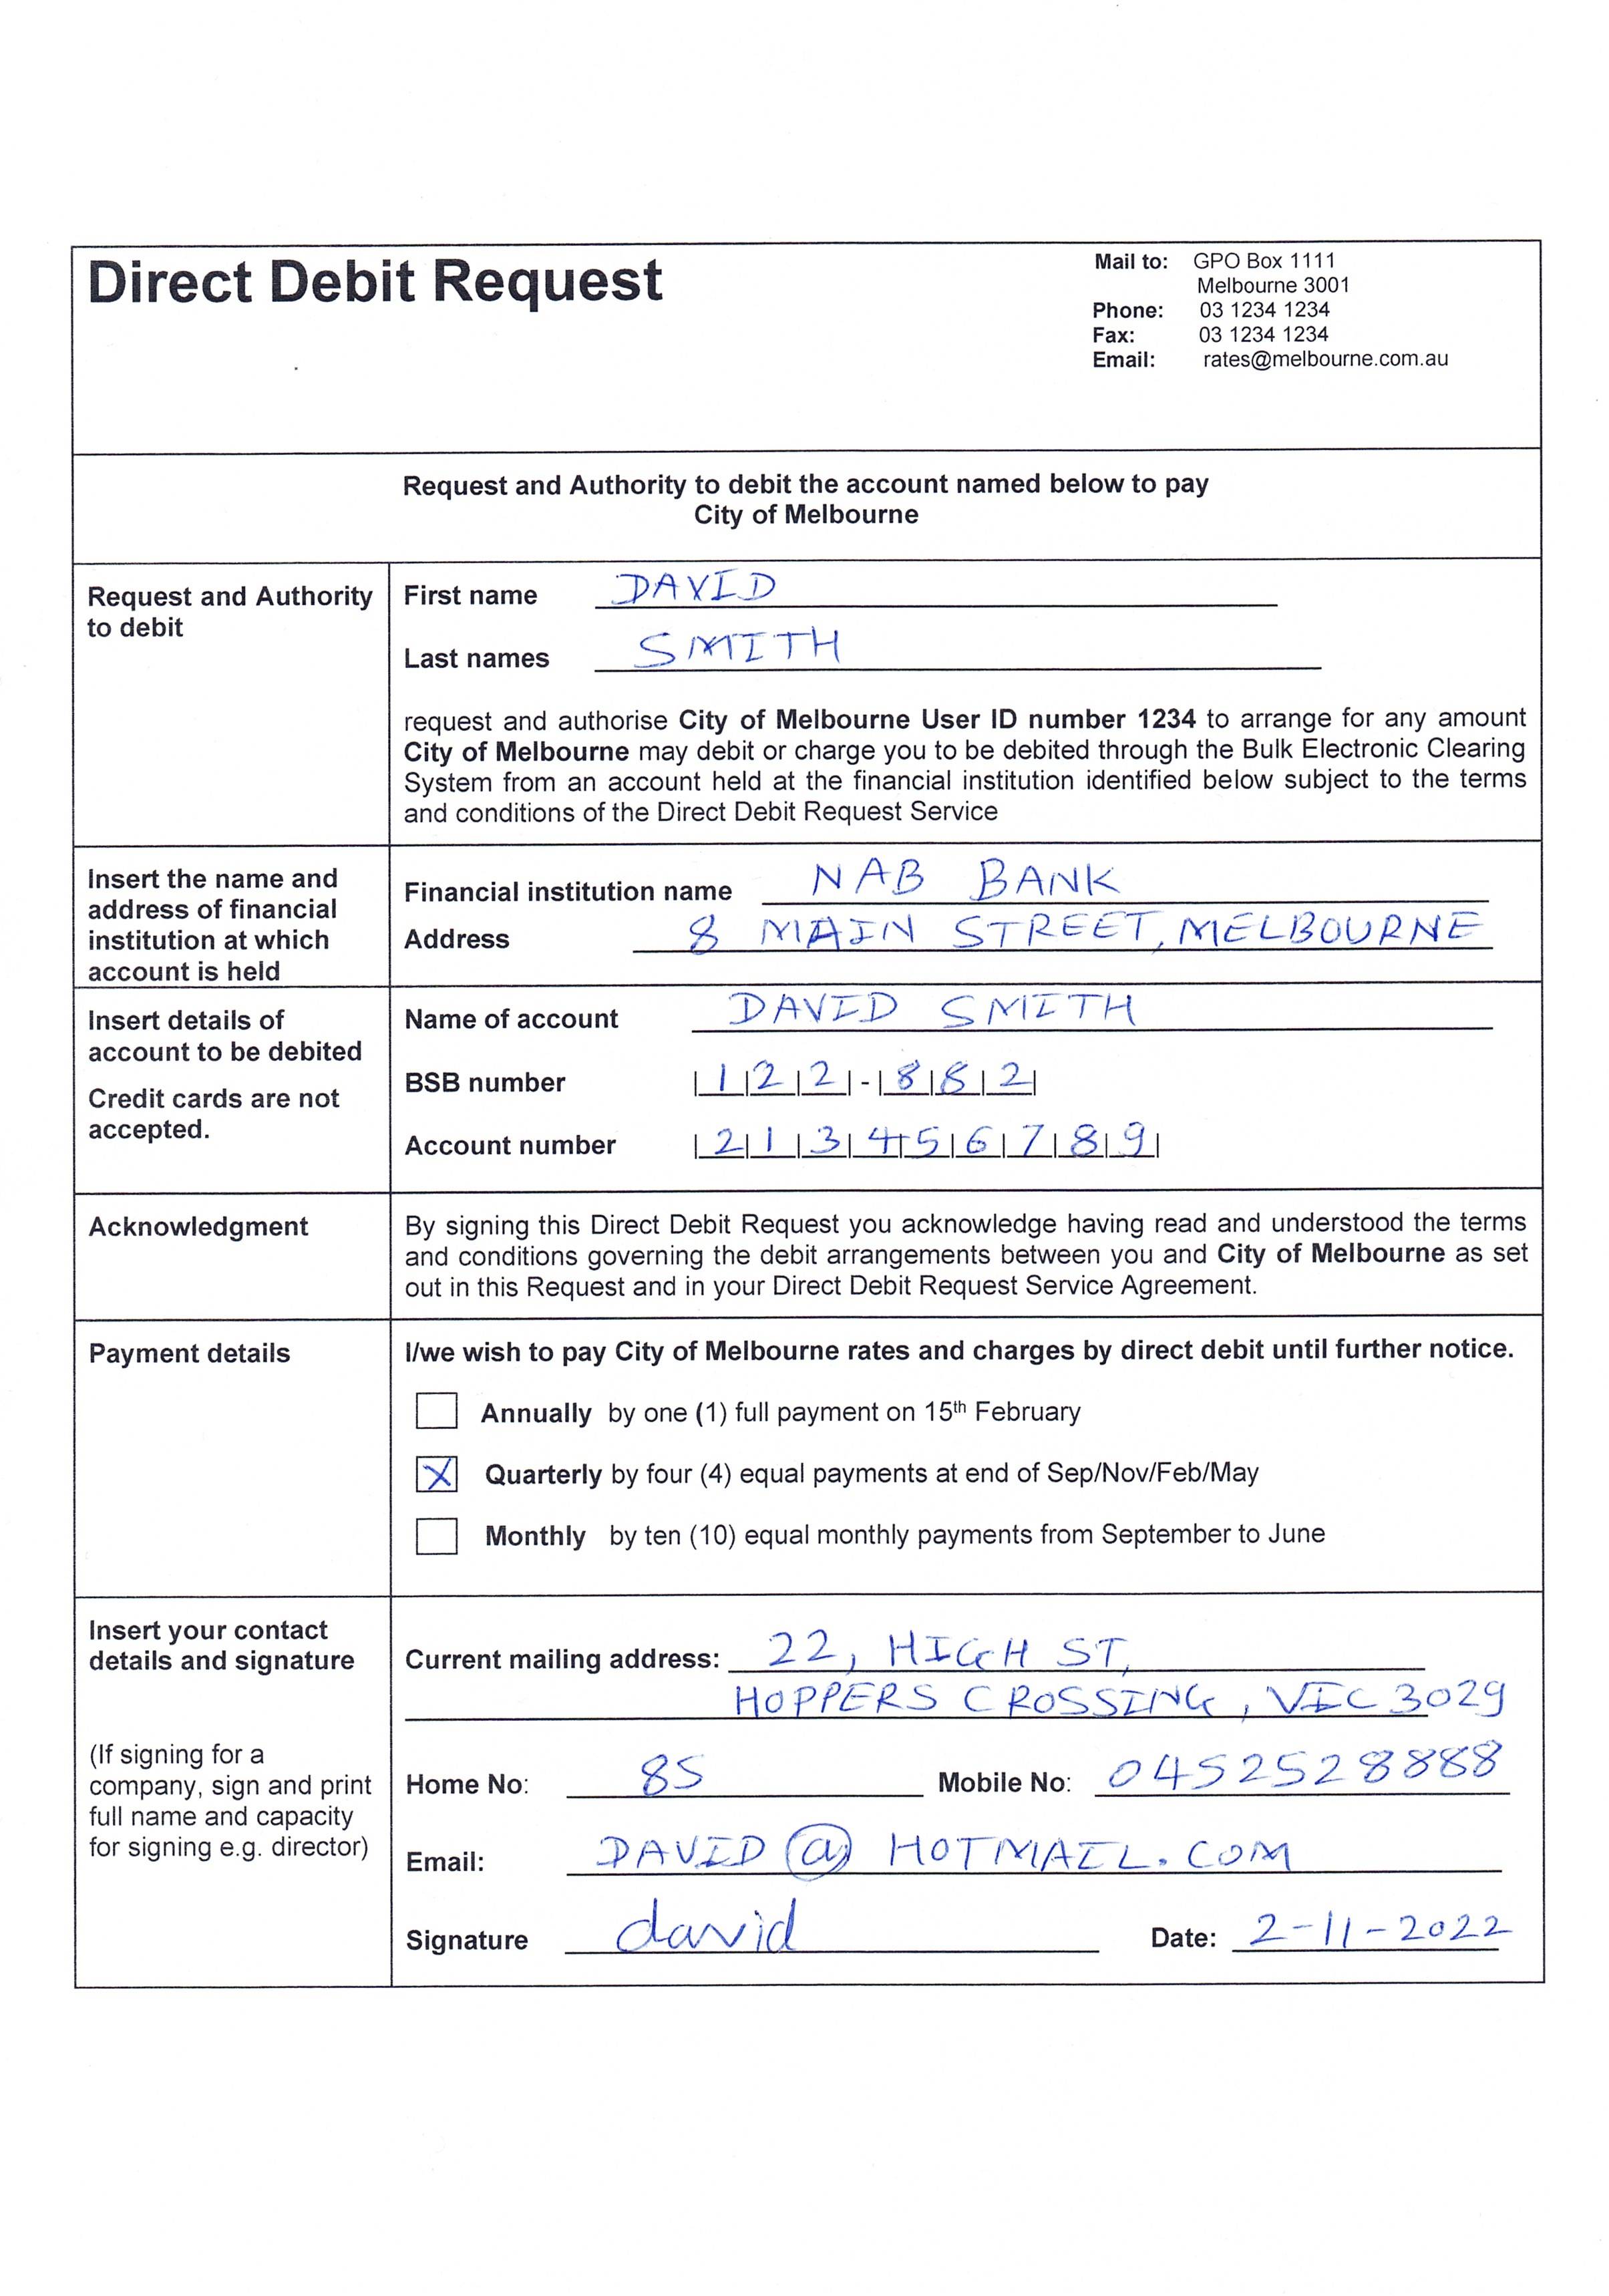 Direct Debit Request
Mail to: GPO Box 1111
Melbourne 3001
Phone: 03 1234 1234
Fax: 03 1234 1234
Email: rates@melbourne.com.au
Request and Authority to debit the account named below to pay
City of Melbourne
Request and Authority
to debit
First name DAVID
Last names SMITH
request and authorise City of Melbourne User ID number 1234 to arrange for any amount
City of Melbourne may debit or charge you to be debited through the Bulk Electronic Clearing
System from an account held at the financial institution identified below subject to the terms
and conditions of the Direct Debit Request Service
Insert the name and
address of financial
institution at which
account is held
Financial institution name NAB BANK
Address 8 MAIN STREET, MELBOURNE
Insert details of
account to be debited
Credit cards are not
accepted.
Name of account DAVID SMITH
BSB number |1|2|2|-|8|8|2|
Account number |2|1|3|4|5|6|7|8|9|
Acknowledgment
By signing this Direct Debit Request you acknowledge having read and understood the terms
and conditions governing the debit arrangements between you and City of Melbourne as set
out in this Request and in your Direct Debit Request Service Agreement.
Payment details
I/we wish to pay City of Melbourne rates and charges by direct debit until further notice.
Annually by one (1) full payment on 15th February
X Quarterly by four (4) equal payments at end of Sep/Nov/Feb/May
Monthly by ten (10) equal monthly payments from September to June
Insert your contact
details and signature
(If signing for a
company, sign and print
full name and capacity
for signing e.g. director)
Current mailing address: 22, HIGH ST,
HOPPERS CROSSING, VIC 3029
Home No: 85 Mobile No: 0452528888
Email: DAVID@HOTMAIL.COM
Signature david Date: 2-11-2022